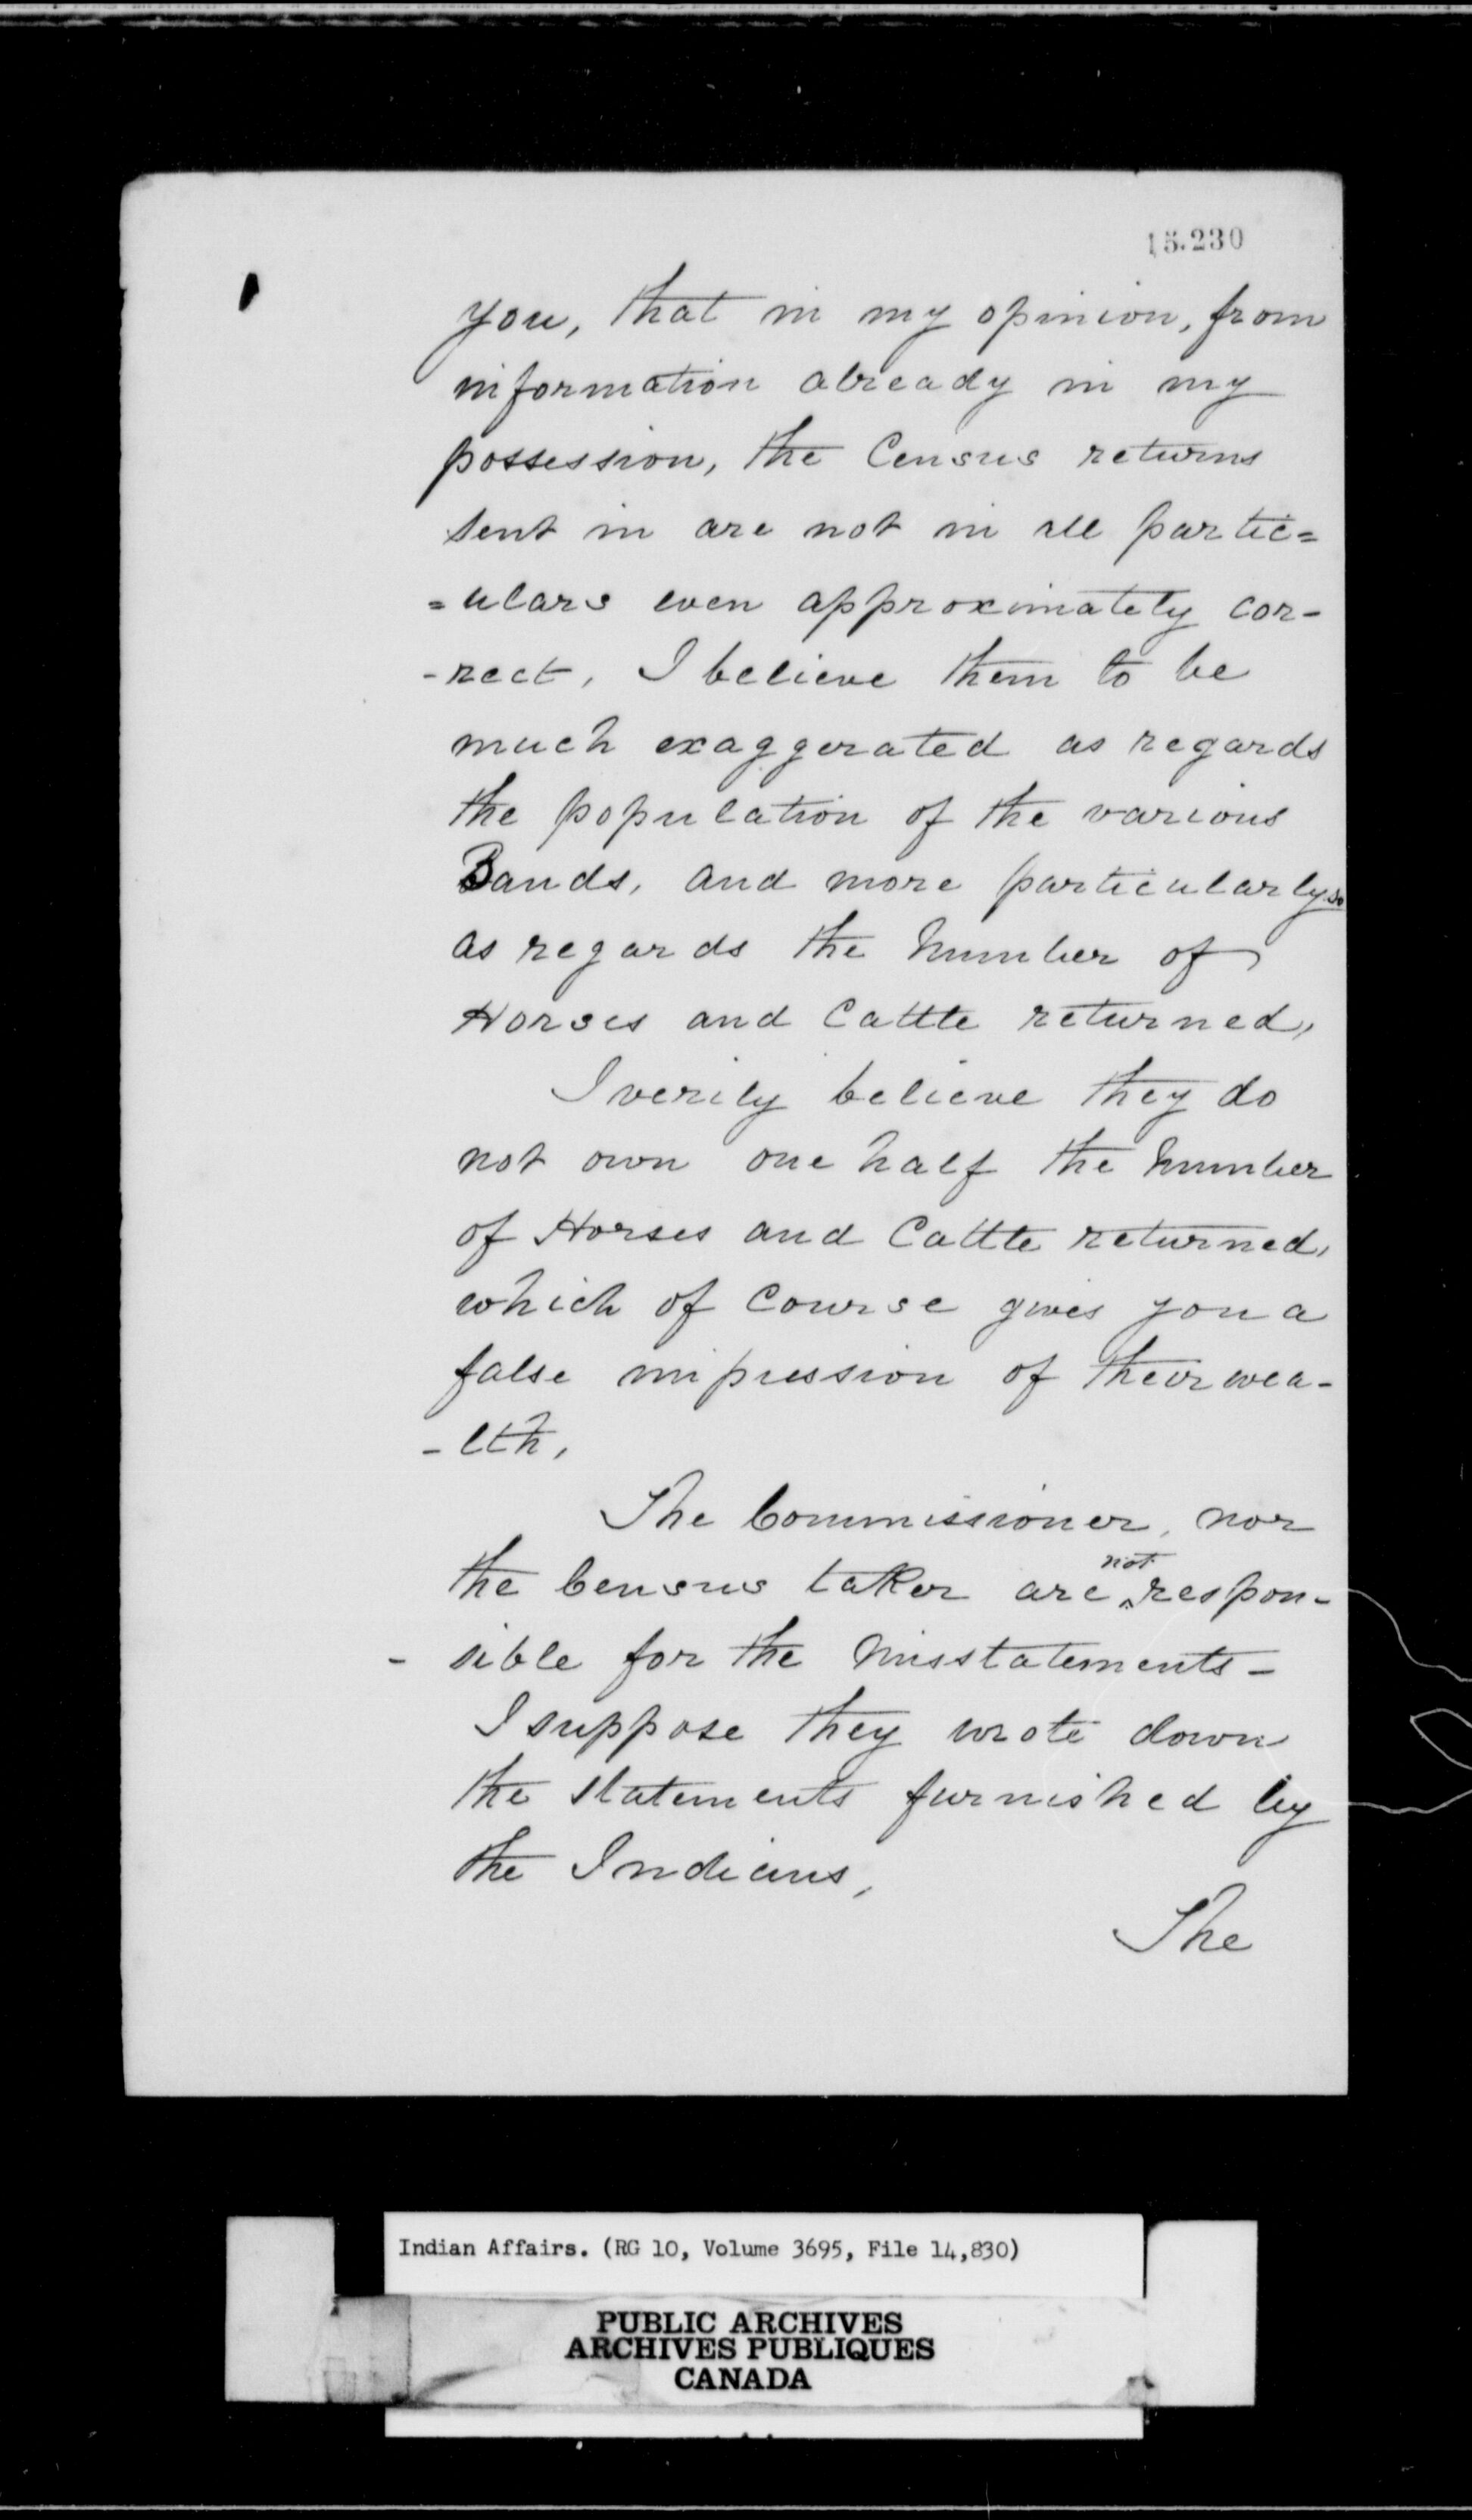 15.230
you, that in my opinion, from
information already in my
possession, the Census returns
sent in are not in all partic=
=ulars even approximately cor-
-rect, I believe them to be
much exaggerated as regards
the population of the various
Bands, and more particularly so
as regards the Number of
Horses and Cattle returned,
I verily believe they do
not own one half the Number
of Horses and Cattle returned,
which of Course gives you a
false impression of their wea-
-lth,
The Commissioner, nor
the Census taker are not respon-
- sible for the Misstatements -
I suppose they wrote down
the statements furnished by
the Indians,
The
Indian Affairs. (RG 10, Volume 3695, File 14,830)
PUBLIC ARCHIVES
ARCHIVES PUBLIQUES
CANADA